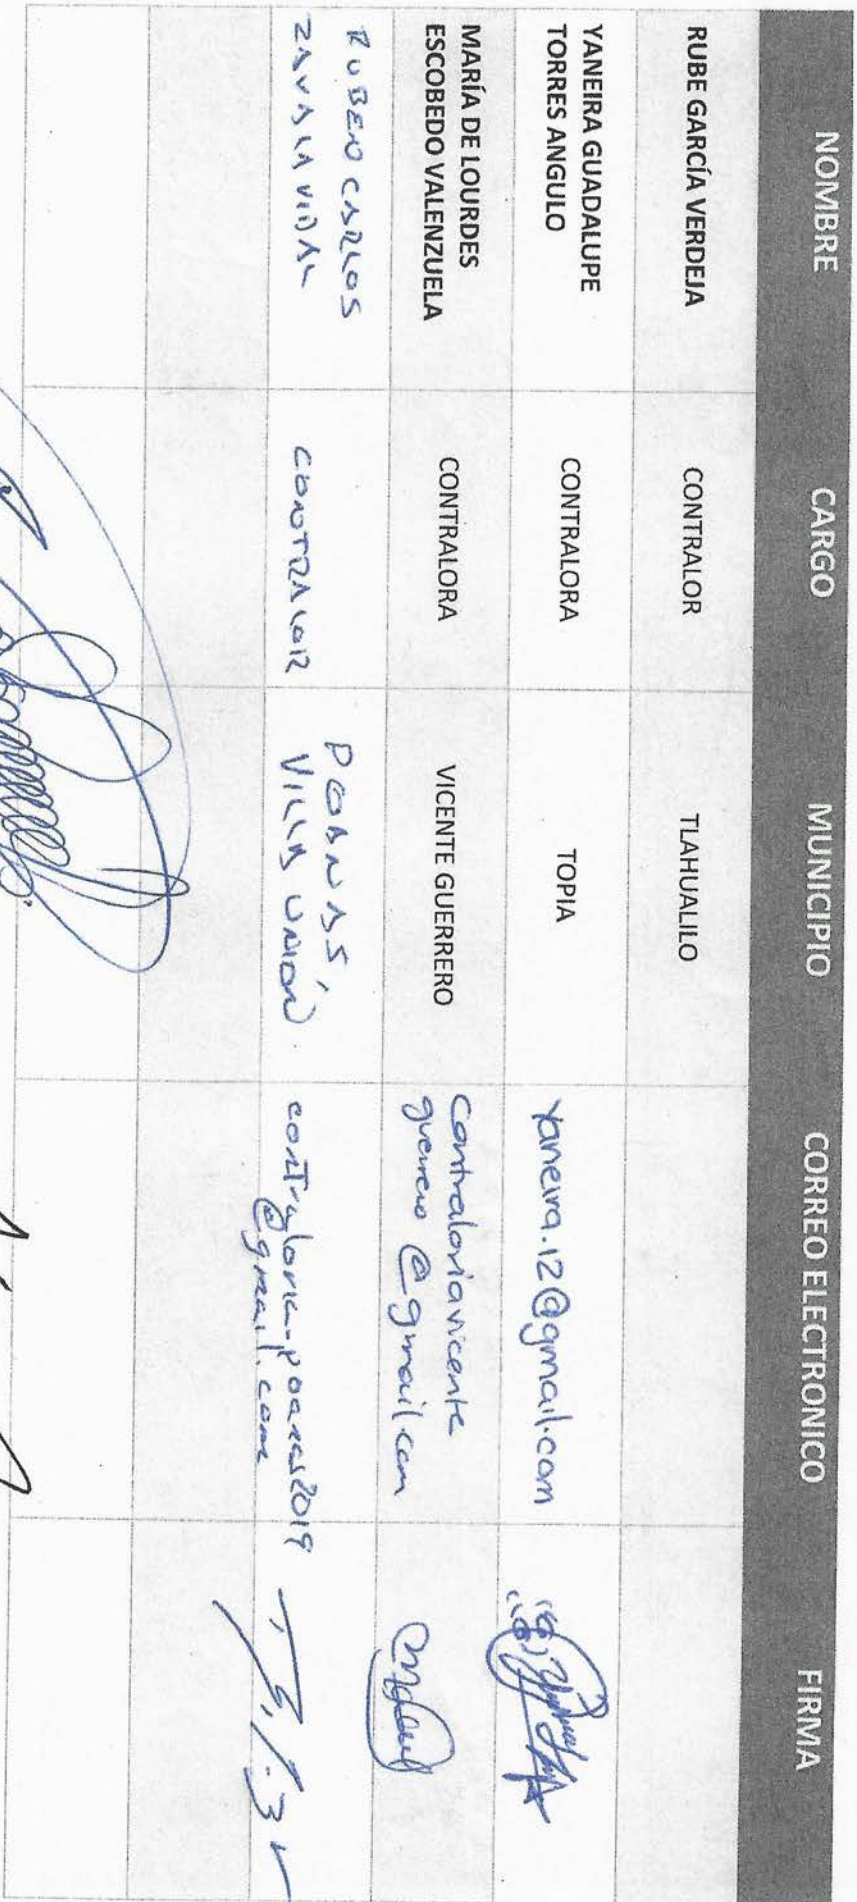 NOMBRE CARGO MUNICIPIO CORREO ELECTRONICO FIRMA
RUBE GARCÍA VERDEJA CONTRALOR TLAHUALILO
YANEIRA GUADALUPE
TORRES ANGULO CONTRALORA TOPIA yaneira.12@gmail.com
MARÍA DE LOURDES
ESCOBEDO VALENZUELA CONTRALORA VICENTE GUERRERO Contraloriavicente
guerrero @gmail.com
RUBEN CARLOS
ZAVALA VIDAL CONTRALOR POANAS,
VILLA UNIÓN contraloria-poanas2019
@gmail.com